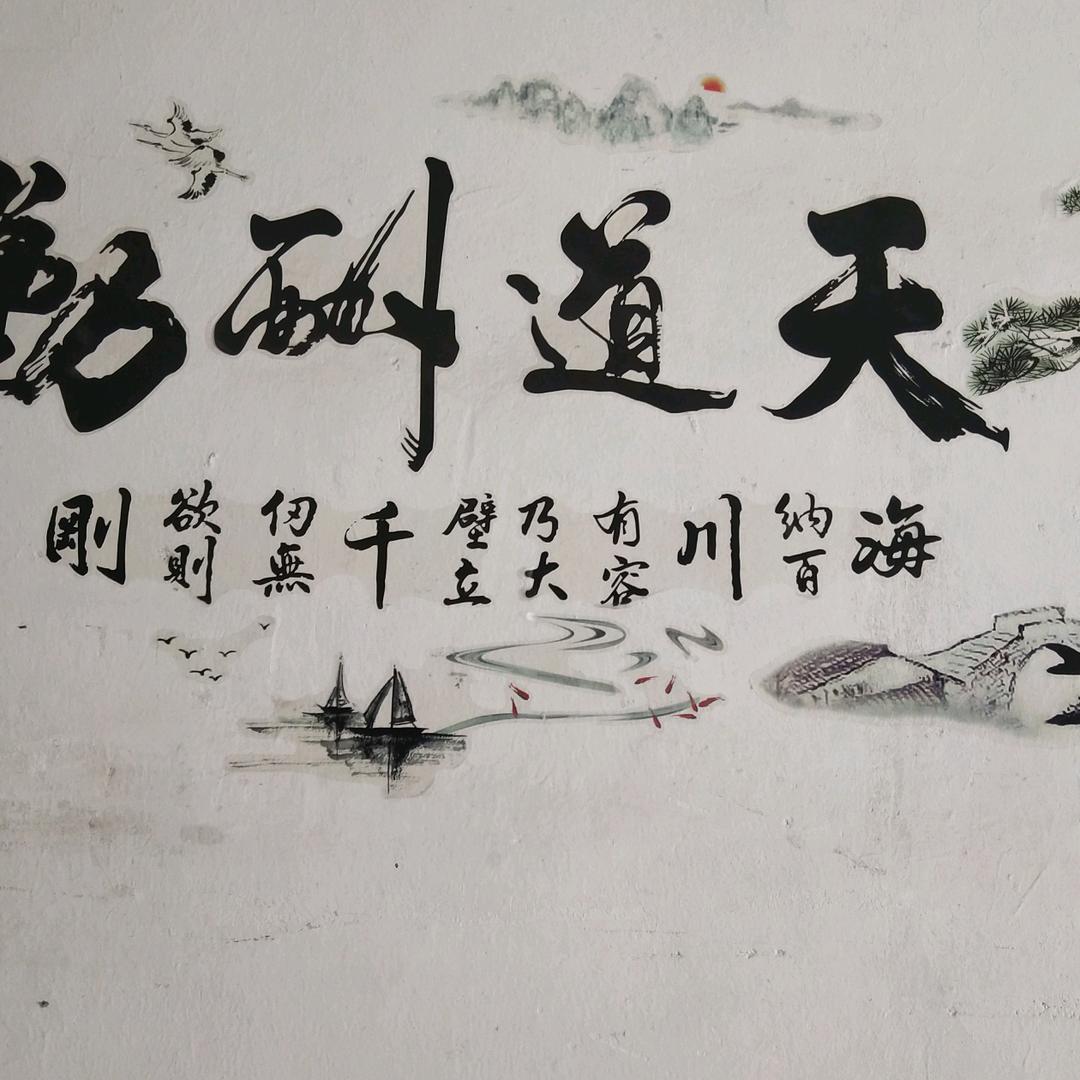 天道酬勤
海納百川有容乃大壁立千仞無欲則剛